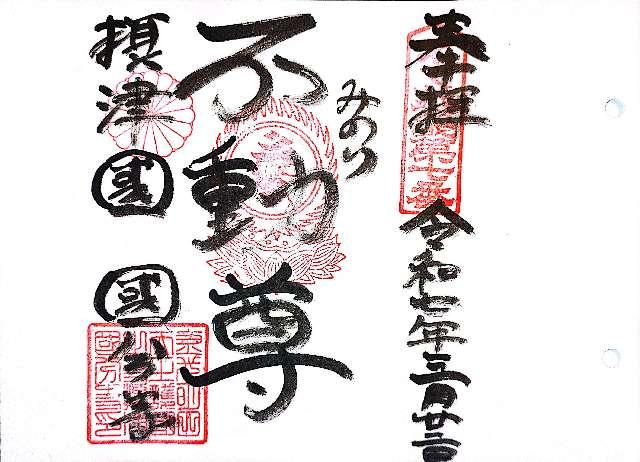 奉拝
令和七年三月廿三日
みのり
不動尊
摂津國
國分寺